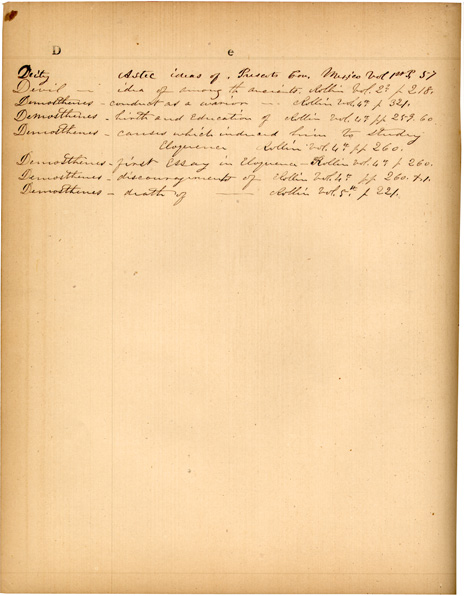 D e
Deity Aztec ideas of. Prescots Con. Mexico Vol 1st P. 57
Devil — idea of among th ancients. Rollin Vol. 2d p 218.
Demosthenes - conduct as a warrior — Rollin Vol. 4th p 321.
Demosthenes - birth and education of Rollin Vol. 4th pp 259. 60
Demosthenes - causes which induced him to studay
Eloquence Rollin Vol. 4th pp 260.
Demosthenes - first Essay in Eloquence - Rollin Vol. 4th p 260.
Demosthenes - discouragement of Rollin Vol. 4th pp 260. +1.
Demosthenes - death of — Rollin Vol. 5th p 221.